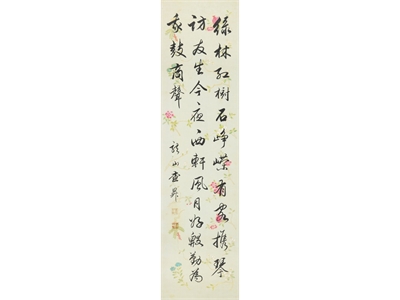 綠林紅樹石崢嶸有客攜琴
訪友生今夜西軒風月好殷勤為
我鼓商聲